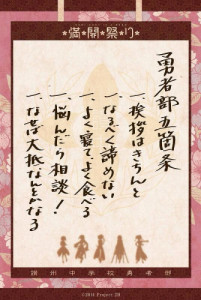 満開祭り
勇者部五箇条
一、挨拶はきちんと
一、なるべく諦めない
一、よく寝て、よく食べる
一、悩んだら相談!
一、なせば大抵なんとかなる
讃州中学校勇者部
©2014 Project 2H